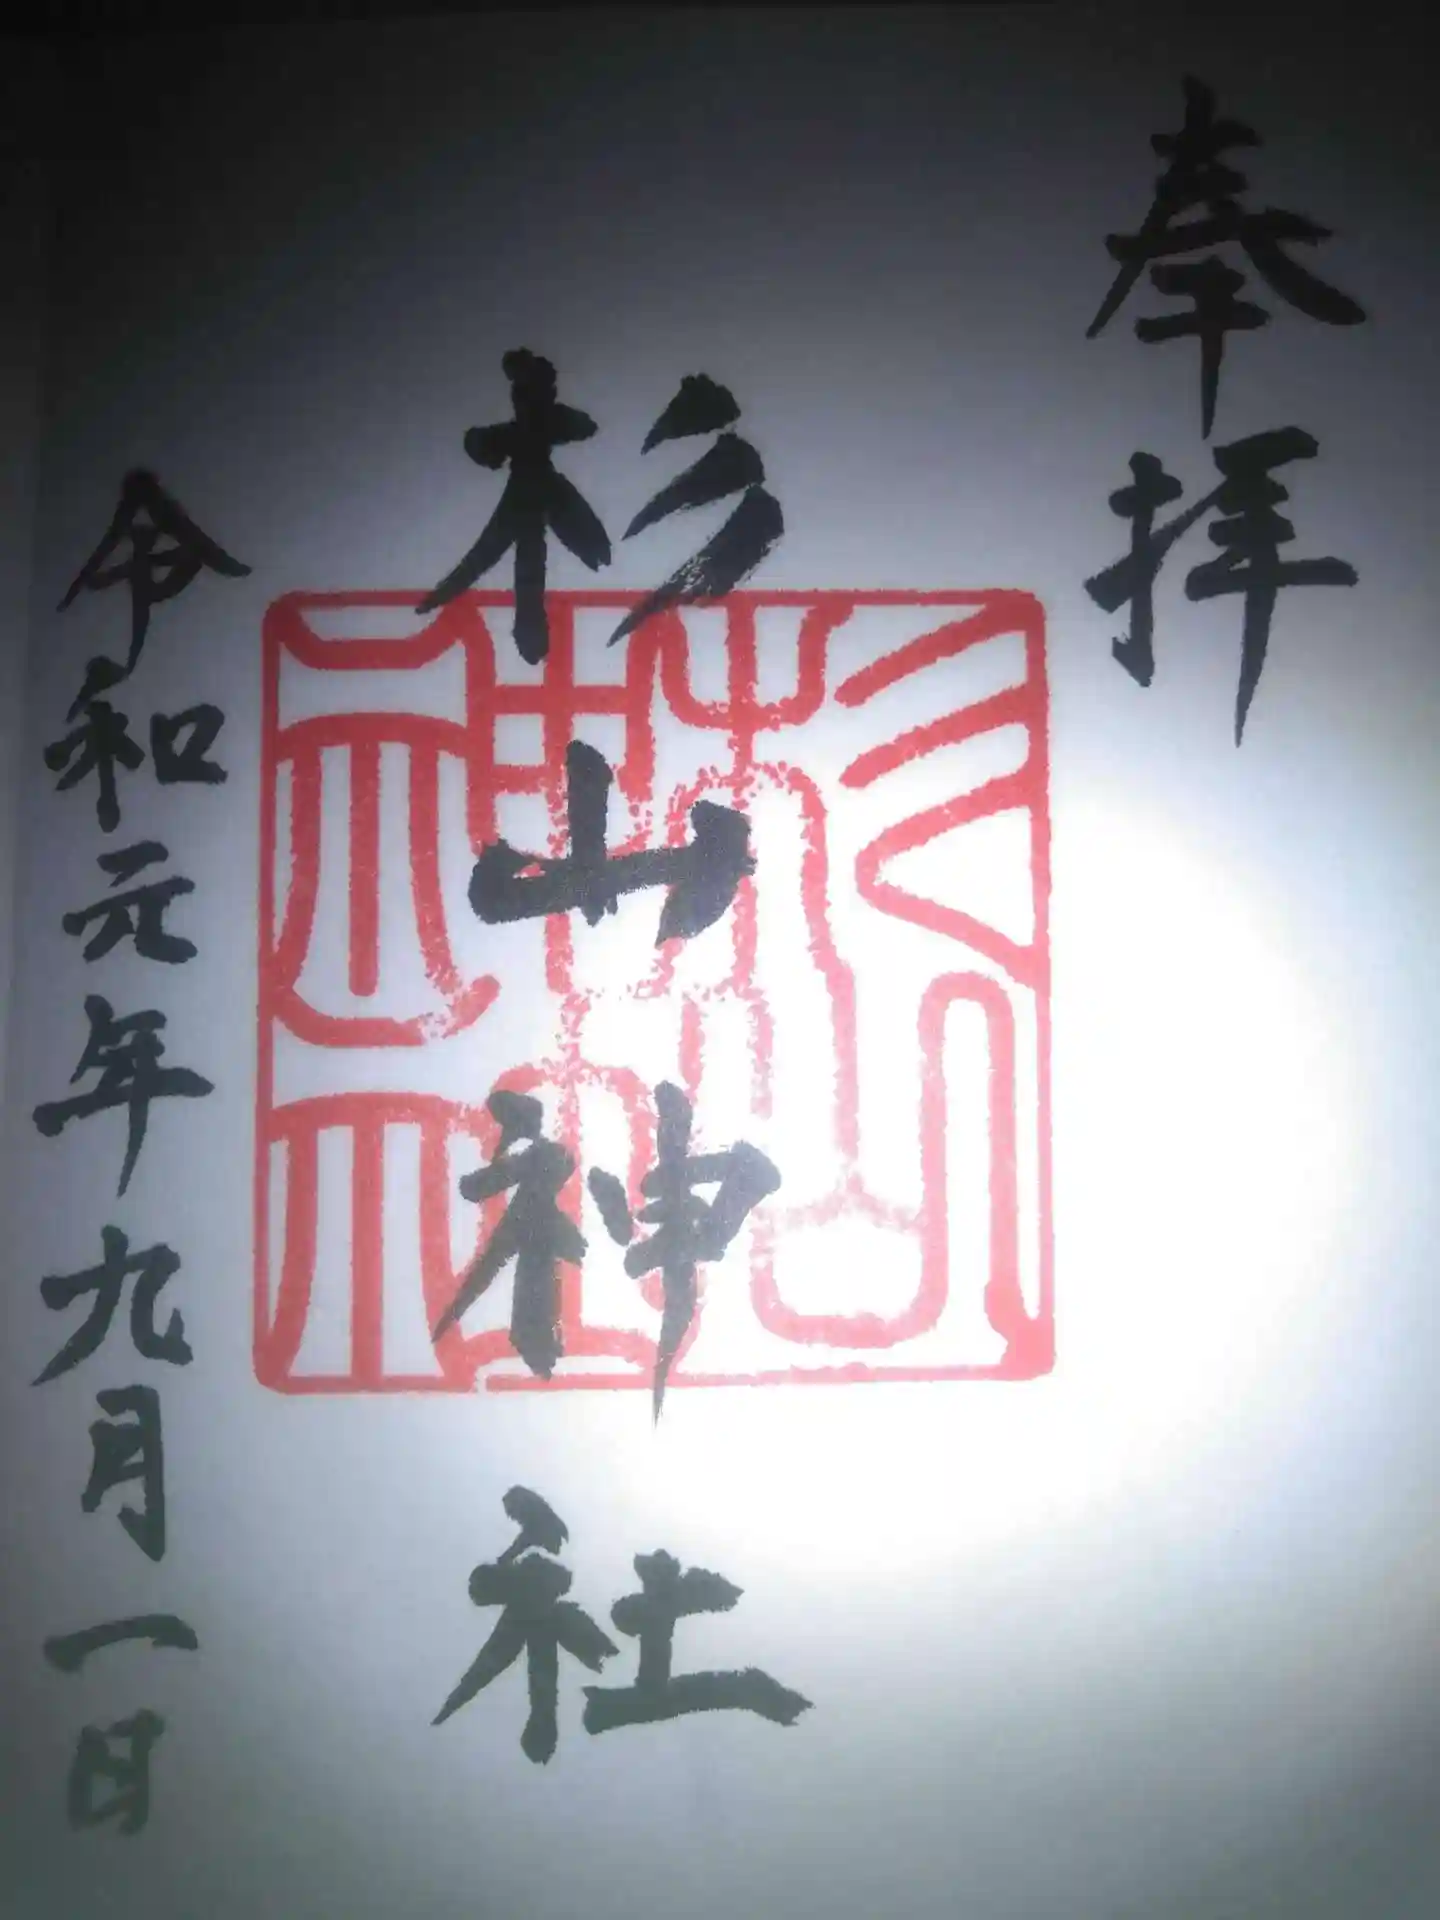 奉拝
杉山神社
杉山
神社
令和元年九月一日